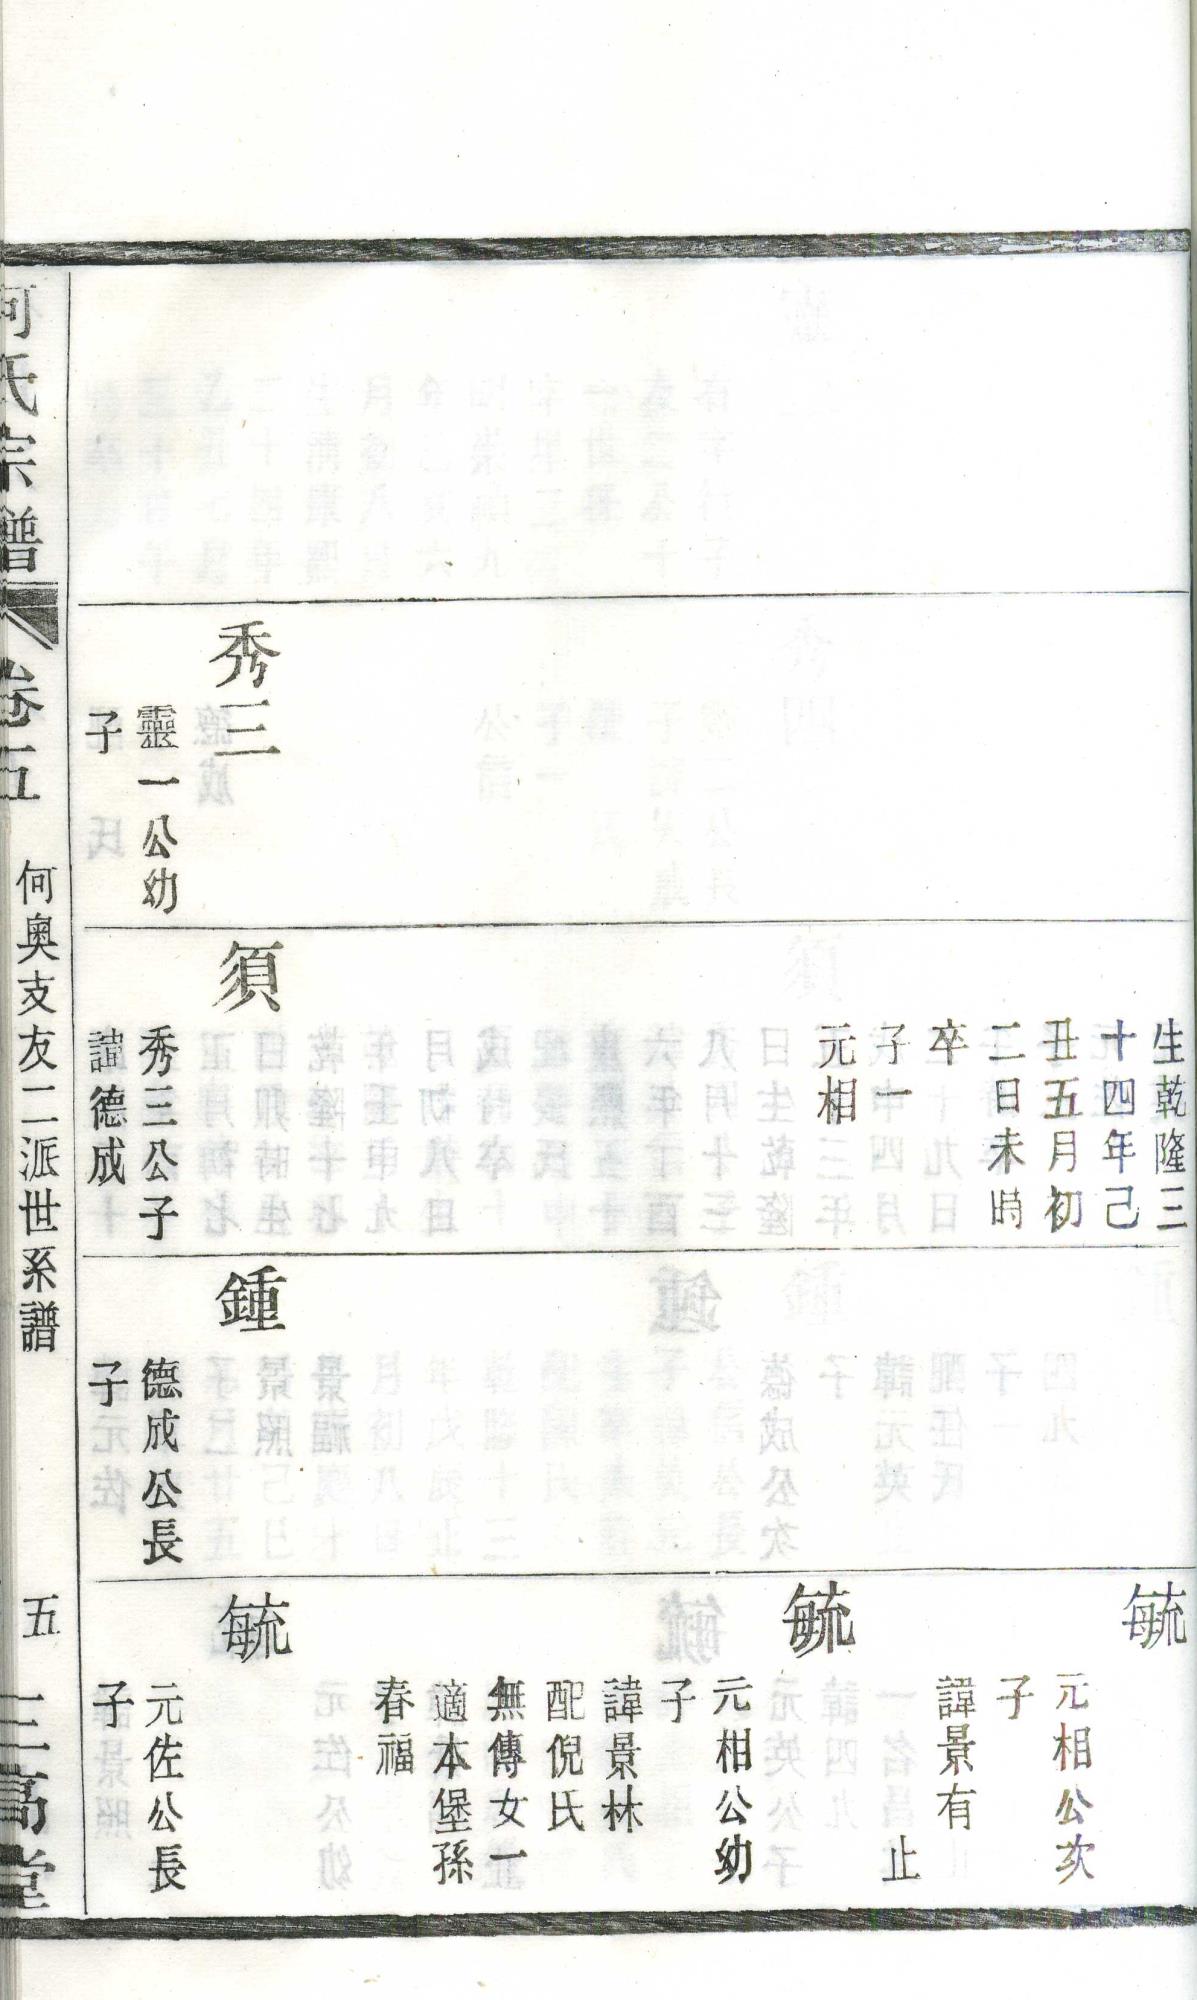 秀三
靈一公幼
子
生乾隆三
十四年己
丑五月初
二日未時
卒
子一
元相
須
秀三公子
諱德成
鍾
德成公長
子
毓
元相公次
子
諱景有
止
毓
元相公幼
子
諱景林
配倪氏
無傳女一
適本堡孫
春福
毓
元佐公長
子
何氏宗譜
卷五
何奧支友二派世系譜
五
三高堂